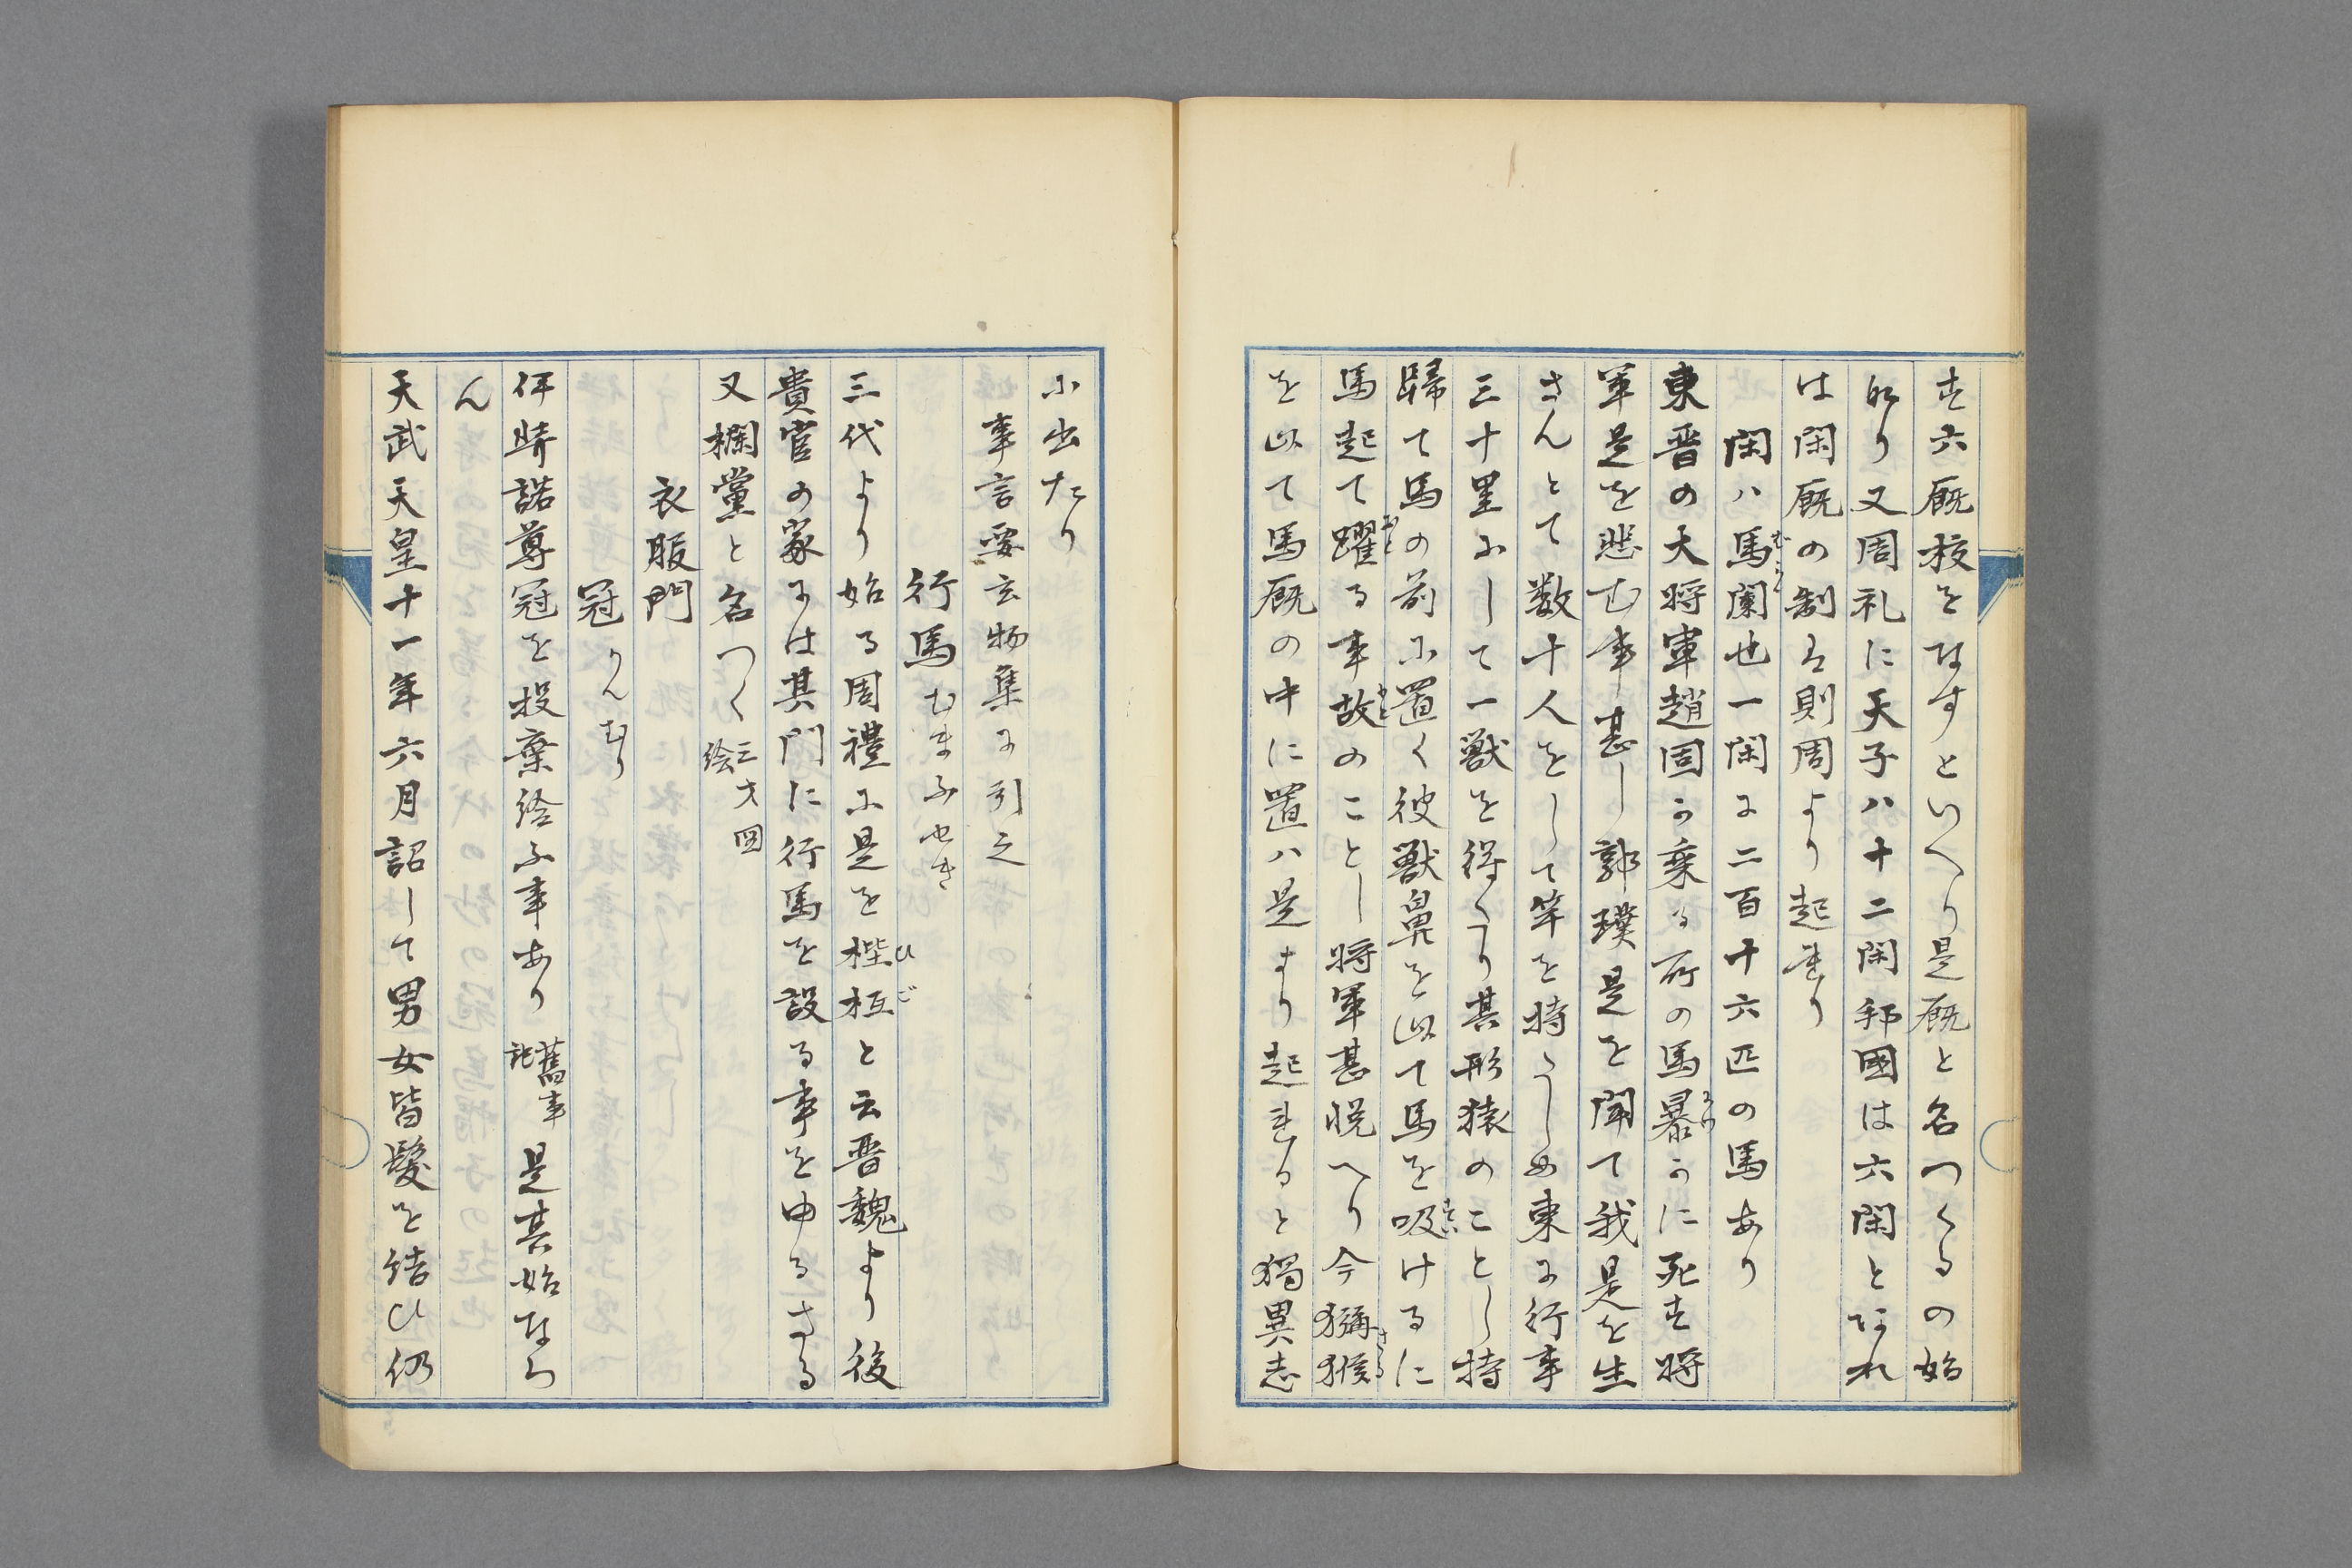 す六厩校をなすといへり是厩と名つくるの始
なり又周礼に天子ハ十二閑邦國は六閑とあれ
は閑厩の制は則周より起れり
閑ハ馬闌也一閑に二百十六匹の馬あり
東晋の大将軍趙固か乗る所の馬暴かに死す将
軍是を悲む事甚し郭璞是を聞て我是を生
さんとて数十人をして竿を持たしめ東に行事
三十里にして一獣を得たり其形猿のことし持
歸て馬の前に置く彼獣鼻を以て馬を吸けるに
馬起て躍る事故のことし将軍甚悦へり今獼猴
を以て馬厩の中に置ハ是より起れると獨異志
に出たり
事言要玄物集に引之
行馬 むまふせき
三代より始る周禮に是を梐枑と云晋魏より後
貴官の家には其門に行馬を設る事をゆるさる
又欄黨と名つく 三才図絵
衣服門
冠 かんむり
伊弉諾尊冠を投棄給ふ事あり 舊事記 是其始なら
ん
天武天皇十一年六月詔して男女皆髪を結ひ仍